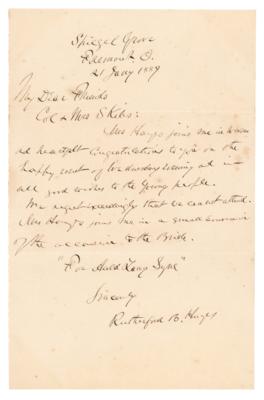 Spiegel Grove
Fremont, O.
21 Jany 1889
My Dear Friends
Col & Mrs
Mrs Hayes joins me in warm
and heartfelt congratulations to you on the
happy event of Wednesday evening and in
all good wishes to the young people.
We regret exceedingly that we cannot attend.
Mrs Hayes joins me in a small souvenir
of the occasion to the Bride.
"For Auld Lang Syne"
Sincerely
Rutherford B. Hayes